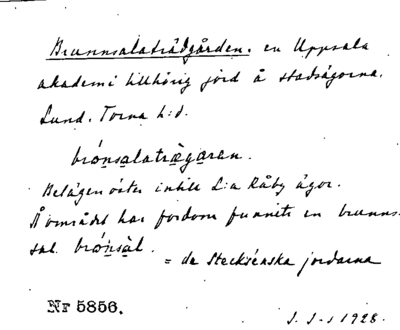 Brunnsalaträdgården. en Uppsala
akademi tillhörig jord å stadsägorna.
Lund. Torna h:d.
brónsalatrægaran.
Belägen öster intill L:a Råby ägor.
Å området har fordom funnits en brunns-
sal. brónsàl.
= de Stecksénska jordarna
Nr 5856.
1928.